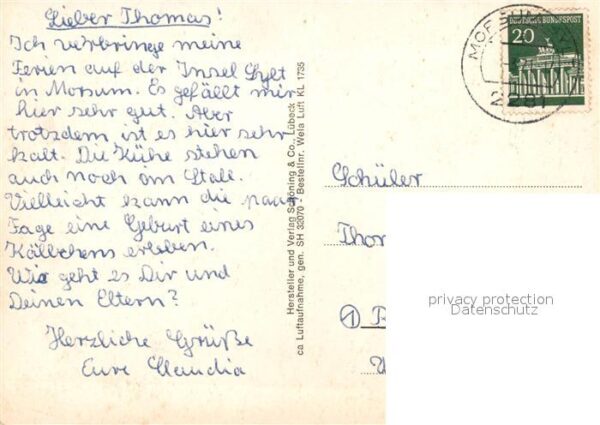 Lieber Thomas!
Ich verbringe meine
Ferien auf der Insel Sylt
in Morsum. Es gefällt mir
hier sehr gut. Aber
trotzdem ist es hier sehr
kalt. Die Kühe stehen
auch noch im Stall.
Vielleicht kann die paar
Tage eine Geburt eines
Kälbchens erleben.
Wie geht es Dir und
Deinen Eltern?
Herzliche Grüße
Eure Claudia
Hersteller und Verlag Schöning & Co., Lübeck
ca Luftaufnahme, gen. SH 32070 - Bestellnr. Wela Luft KL 1735
DEUTSCHE BUNDESPOST
20
MORSUM
2281
Schüler
Thom
1
privacy protection
Datenschutz